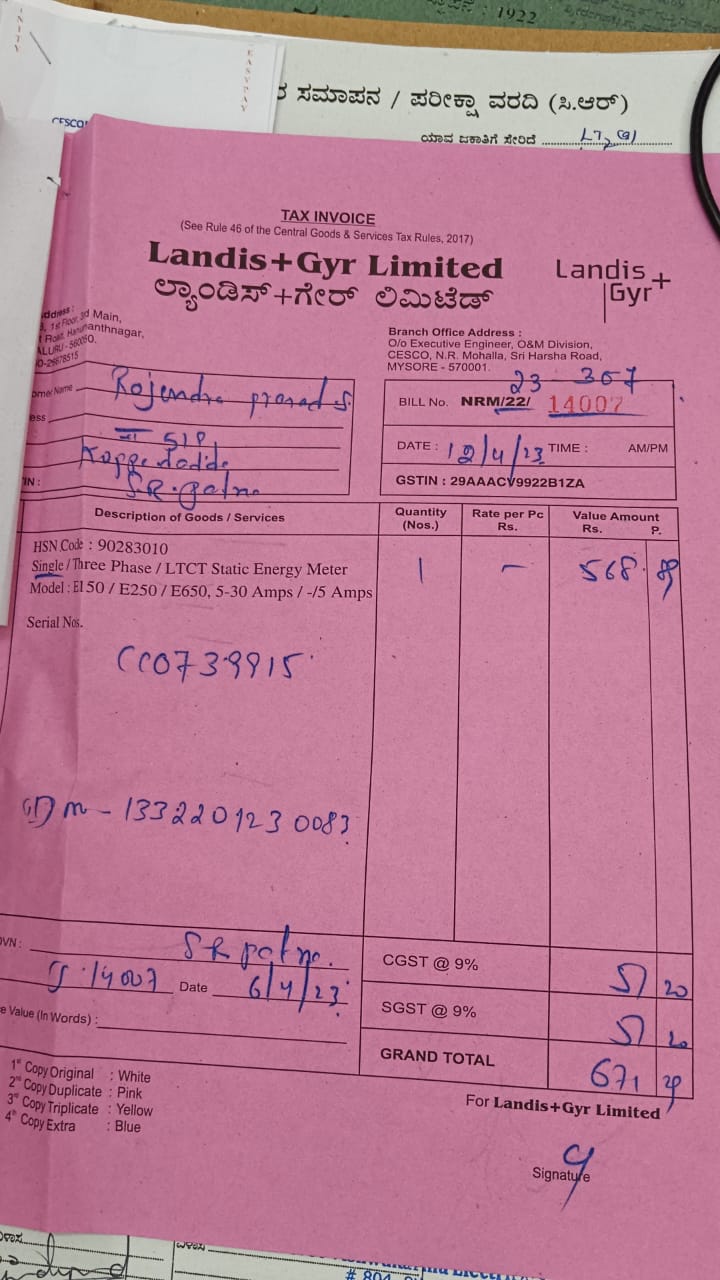 : 1922
INITY
EASYPAY
CESCO
ರ ಸಮಾಪನ / ಪರೀಕ್ಷಾ ವರದಿ (ಸಿ.ಆರ್)
ಯಾವ ಜಕಾತಿಗೆ ಸೇರಿದೆ
TAX INVOICE
(See Rule 46 of the Central Goods & Services Tax Rules, 2017)
Landis+Gyr Limited
ಲ್ಯಾಂಡಿಸ್+ಗೇರ್ ಲಿಮಿಟೆಡ್
Landis+
Gyr
ddress :
, 1st Floor, 3rd Main,
Road, Hanumanthnagar,
ALURU - 560050.
0-26678515
Branch Office Address :
O/o Executive Engineer, O&M Division,
CESCO, N.R. Mohalla, Sri Harsha Road,
MYSORE - 570001.
omer Name Rajendra prasad S.
ess
S R. patna
IN :
23 - 307
BILL No. NRM/22/ 14007
DATE : 12/4/23 TIME : AM/PM
GSTIN : 29AAACV9922B1ZA
Description of Goods / Services Quantity (Nos.) Rate per Pc Rs. Value Amount Rs. P.
HSN Code : 90283010
Single / Three Phase / LTCT Static Energy Meter 1 - 568. 89
Model : E150 / E250 / E650, 5-30 Amps / -/5 Amps
Serial Nos.
CC0739915
m - 1332201230083
OVN : S R patna.
14007 Date 6/4/23
e Value (In Words) :
CGST @ 9% 51 20
SGST @ 9% 51 20
GRAND TOTAL 671 29
1st Copy Original : White
2nd Copy Duplicate : Pink
3rd Copy Triplicate : Yellow
4th Copy Extra : Blue
For Landis+Gyr Limited
Signature
# 804